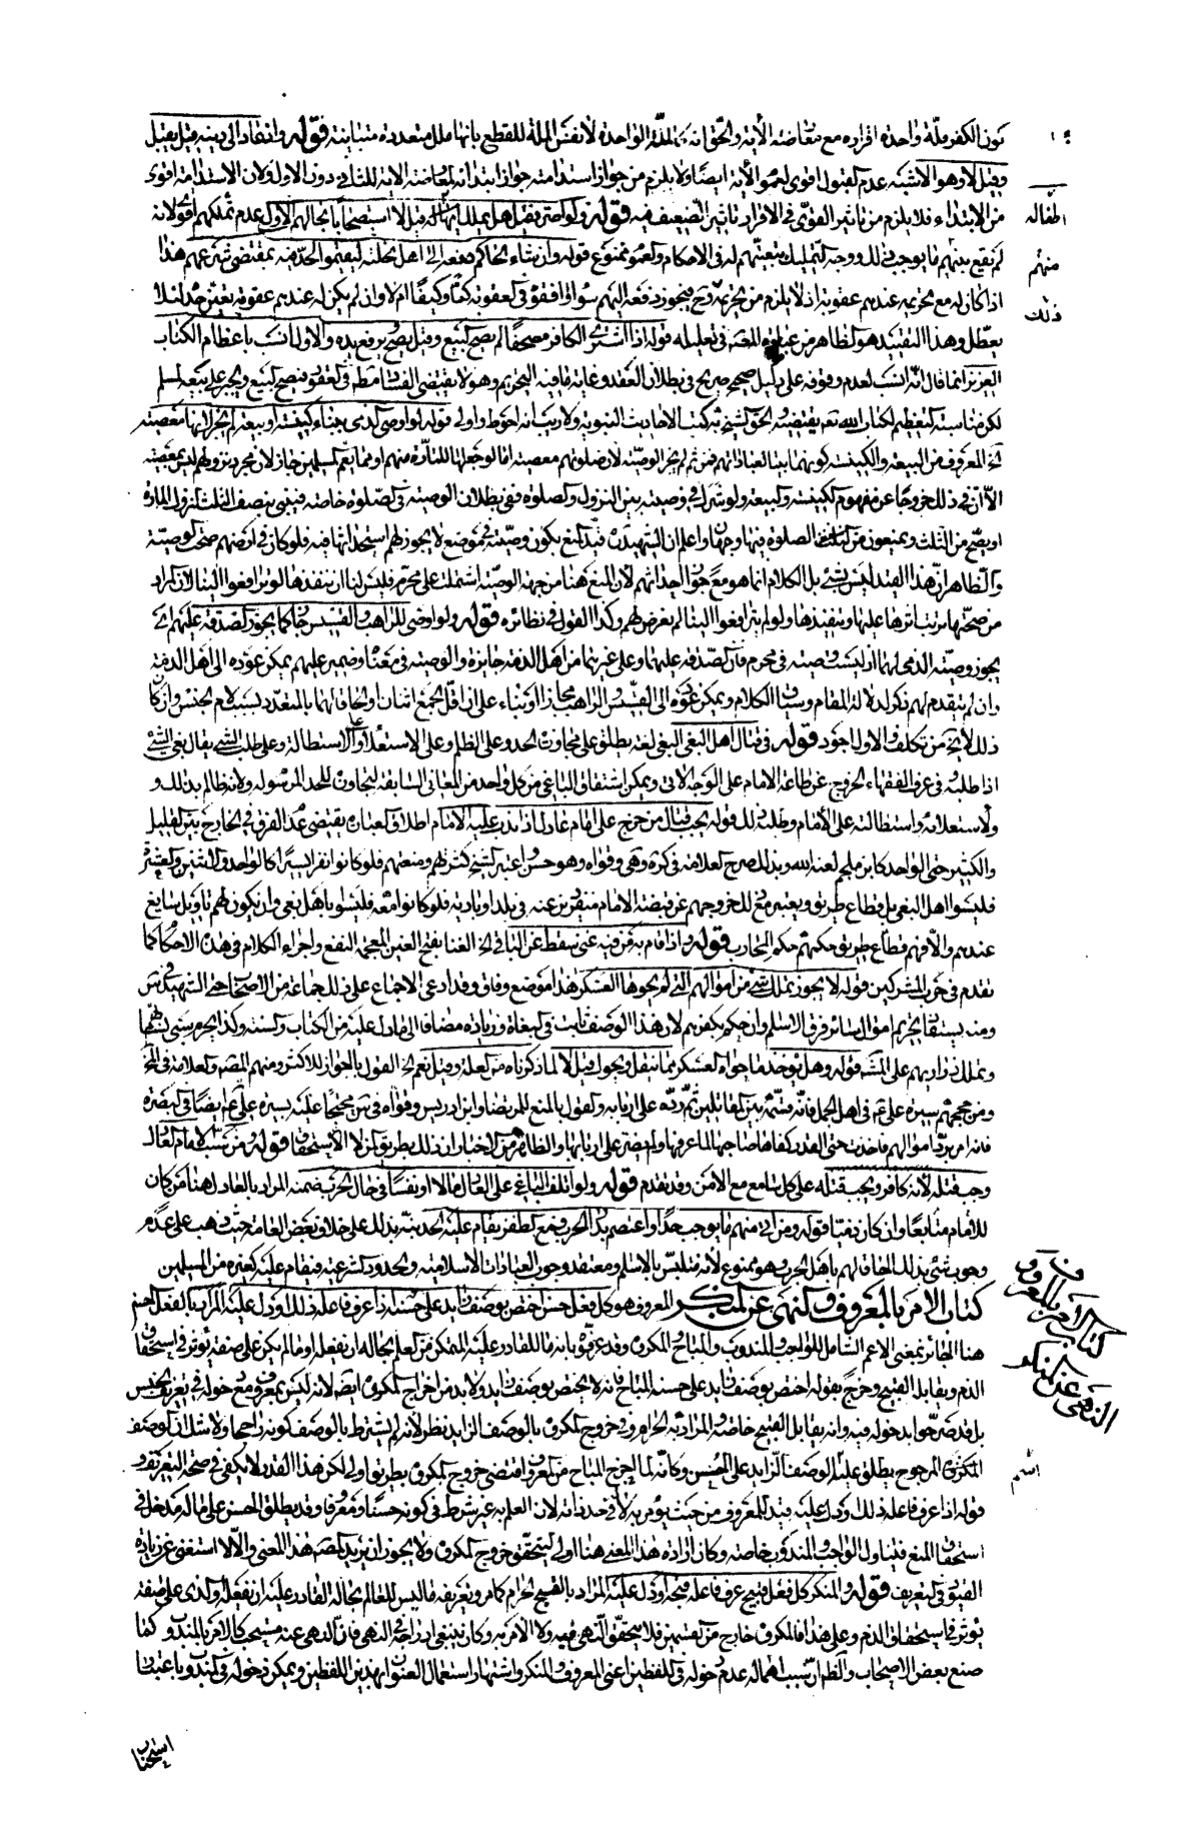 كون الكفر ملة واحدة اقراره مع معارضة الآية والحق انه كالملة الواحدة لا نفس الملة للقطع بانها ملل متعددة متباينة قوله وانقاد الى دينه قيل يقبل
وقيل لا وهو الاشبه عدم القبول اقوى لعموم الآية ايضا ولا يلزم من جواز استدامته جواز ابتدائه لمعارضة الآية للثاني دون الاول ولان الاستدامة اقوى
من الابتداء فلا يلزم من تاثير القوي في الاقرار تاثير الضعيف فيه قوله ولو اصر فقتل هل يملك اطفاله قيل لا استصحابا لحالهم الاول عدم تملكهم اقوى لانه
لم يقع منهم ما يوجب ذلك ووجه التمليك تبعيتهم له في الاحكام والعموم ممنوع قوله وان شاء الحاكم دفعه الى اهل نحلته ليقيموا الحد فيه بمقتضى شرعهم هذا
اذا كان له مع تحريمه عندهم عقوبة اذ لا يلزم من تحريمه وح فيجوز دفعه اليهم سواء وافقوه في العقوبة كما وكيفا ام لا وان لم يكن له عندهم عقوبة تعين حده لئلا
يعطل وهذا التقييد هو الظاهر من عبارة المصنف في تعليله قوله اذا اشترى الكافر مصحفا لم يصح البيع وقيل يصح ويرفع يده والاول انسب باعظام الكتاب
العزيز انما قال انه انسب لعدم وقوفه على دليل صحيح صريح في بطلان العقد وغاية ما فيه التحريم وهو لا يقتضي الفساد مط في العقود فيصح البيع ويجبر على بيعه لمسلم
لكن مناسبة التعظيم لكتاب الله تعه يقتضيه والحق الشيخ به كتب الاحاديث النبوية ولا ريب انه احوط واولى قوله لو اوصى الذمي ببناء كنيسة او بيعة لم يجز لانها معصية
المعروف من البيعة والكنيسة كونهما بيتا لعباداتهم فمن ثم لم يجز الوصية لان صلوتهم معصية اما لو جعلها للمارة منهم او بما يعم المسلمين جاز لان مجرد نزولهم ليس بمعصية
الا ان في ذلك خروجا عن مفهوم الكنيسة والبيعة ولو شرك في وصيته بين النزول والصلوة ففي بطلان الوصية في الصلوة خاصة فيبنى بنصف الثلث لنزول المارة
او يصح من الثلث ويمنعون من الصلوة فيها وجهان واعلم ان الشهيد قيد المنع بكون وصيته في موضع لا يجوز لهم استحداثها فيه فلو كان في ارضهم صحت الوصية
والظاهر ان هذا القيد ليس بشيء بل الكلام انما هو مع جواز احداثهم لان المنع هنا من جهة الوصية اشتملت على محرم فليس لنا ان ننفذها لو ترافعوا الينا لان المراد
من صحتها ترتب اثرها عليها وتنفيذها ولو لم يترافعوا الينا لم نعرض لهم وكذا القول في نظائره قوله ولو اوصى للراهب والقسيس جاز كما يجوز الصدقة عليهم اي
يجوز وصية الذمي لهما اذ ليست وصية في محرم فان الصدقة عليهما وعلى غيرهما من اهل الذمة جايزة والوصية في معناها وضمير عليهم يمكن عوده الى اهل الذمة
وان لم يتقدم لهم ذكر لدلالة المقام وسياق الكلام ويمكن عوده الى القسيس والراهب مجازا او بناء على ان اقل الجمع اثنان او الحاقا لهما بالمتعدد بسبب لام الجنس وان كان
ذلك لا يخ من تكلف والاول اجود قوله في قتال اهل البغي البغي لغة يطلق على مجاوزة الحد وعلى الظلم وعلى الاستعلاء والاستطالة وعلى طلب الشيء يقال بغى الشيء
اذا طلبه وفي عرف الفقهاء الخروج عن طاعة الامام على الوجه الاتي ويمكن اشتقاق الباغي من كل واحد من المعاني السابقة لتجاوزه للحد المرسوم له ولانه ظالم بذلك و
ولاستعلائه واستطالته على الامام وطلبه ذلك قوله يجب قتال من خرج على امام عادل اذا ندب عليه الامام اطلاق العبارة يقتضي عدم الفرق في الخارج بين القليل
والكثير حتى الواحد كابن ملجم لعنه الله وبذلك صرح العلامة في كره وهي وقواه وهو حسن واعتبر الشيخ كثرتهم ومنعتهم فلو كانوا نفرا يسيرا كالواحد والاثنين والعشرة
فليسوا اهل البغي بل قطاع طريق ويعتبر مع ذلك خروجهم عن قبضة الامام منفردين عنه في بلد او بادية فلو كانوا معه فليسوا باهل بغي وان يكون لهم تاويل سايغ
عندهم والا فهم قطاع طريق حكمهم حكم المحارب قوله واذا قام به من فيه غنى سقط عن الباقي الغنا بفتح الغين المعجمة النفع واجراء الكلام في هذه الاحكام كما
تقدم في حرب المشركين قوله لا يجوز تملك شيء من اموالهم التي لم يحوها العسكر هذا موضع وفاق وقد ادعى الاجماع على ذلك جماعة من الاصحاب حتى الشهيد في س
ومنه يستفاد تحريم اموال سائر فرق الاسلم وان حكم بكفرهم لان هذا الوصف ثابت في البغاة وزيادة مضافا الى ما دل عليه من الكتاب والسنة وكذا يحرم سبي نسائهم
وتملك ذراريهم على المشهور قوله وهل يؤخذ ما حواه العسكر مما ينقل ويحول قيل لا لما ذكرناه من العلة وقيل نعم الخ القول بالجواز للاكثر ومنهم المصنف والعلامة في المخ
ومن حججهم سيرة علي ع في اهل الجمل فانه قسمه بين المقاتلين ثم رده على اربابه والقول بالمنع للمرتضى وابن ادريس وقواه في س محتجا عليه بسيرة علي ع ايضا في البصرة
فانه امر برد اموالهم فاخذت حتى القدر كفاها صاحبها لما عرفها ولم يصبر على اربابها والظاهر من الاخبار ان ذلك بطريق المن لا الاستحقاق قوله ومن سب الامام العادل
وجب قتله لانه كافر ويجب قتله على كل سامع مع الامن وقد تقدم قوله ولو اتلف الباغي على العادل مالا او نفسا في حال الحرب ضمنه المراد بالعادل هنا من كان
للامام متابعا وان كان ذميا قوله ومن اتى منهم بما يوجب حدا واعتصم بدار الحرب فمع الظفر يقام عليه الحد نبه بذلك على خلاف بعض العامة حيث ذهب على عدم
وجوب شيء بذلك الحاقا لهم باهل الحرب وهو ممنوع لانه متلبس بالاسلم ومعتقد وجوب العبادات الاسلامية والحدود الشرعية فيقام عليه كغيره من المسلمين
كتاب الامر بالمعروف والنهي عن المنكر المعروف هو كل فعل حسن اختص بوصف زايد على حسنه اذا عرف فاعله ذلك او دل عليه المراد بالفعل الحسن
هنا الجائز بمعنى الاعم الشامل للواجب والمندوب والمباح والمكروه وقد عرفوه بانه ما للقادر عليه المتمكن من العلم بحاله ان يفعله او ما لم يكن على صفة تؤثر في استحقاق
الذم ويقابله القبيح وخرج بقوله اختص بوصف زايد على حسنه المباح فانه لا يختص بوصف زايد ولا بد من اخراج المكروه ايضه لانه ليس بمعروف مع دخوله في تعريف الحسن
بل قد صرحوا بدخوله فيه وانه يقابل القبيح خاصة والمراد به الحرام وفي خروج المكروه بالوصف الزايد نظر لانه لم يشترط بالوصف كونه راجحا ولا شك ان الوصف
المكروه المرجوح يطلق عليه الوصف الزايد على الحسن وكانه لما اخرج المباح من المعروف اقتضى خروج المكروه بطريق اولى لكن هذا القدر لا يكفي في صحة التعريف و
قوله اذا عرف فاعله ذلك او دل عليه قيد للمعروف من حيث يؤمر به لا في حد ذاته لان العلم به غير شرط في كونه حسنا ومعروفا وقد يطلق الحسن على ما له مدخل في
استحقاق المدح فيتناول الواجب والمندوب خاصة وكان ارادة هذا المعنى هنا اولى ليتحقق خروج المكروه ولا يجوز ان يريد المصنف هذا المعنى والا لاستغنى عن زيادة
القيود في التعريف قوله والمنكر كل فعل قبيح عرف فاعله قبحه او دل عليه المراد بالقبيح الحرام كما مر وتعريفه ما ليس للعالم بحاله القادر عليه ان يفعله او الذي على صفة
تؤثر في استحقاق الذم وعلى هذا فالمكروه خارج من القسمين فلا يتحقق النهي فيه ولا الامر به وكان ينبغي ادراجه في النهي فان النهي عنه مستحب كالامر بالمندوب كما
صنع بعض الاصحاب والظاهر ان سبب اهماله عدم دخوله في اللفظين اعني المعروف والمنكر واشتهار استعمال العنوان بهذين اللفظين ويمكن دخوله في المندوب باعتبار
اطفاله
منهم
ذلك
كتاب الامر بالمعروف
النهي عن المنكر
اسم
استحباب